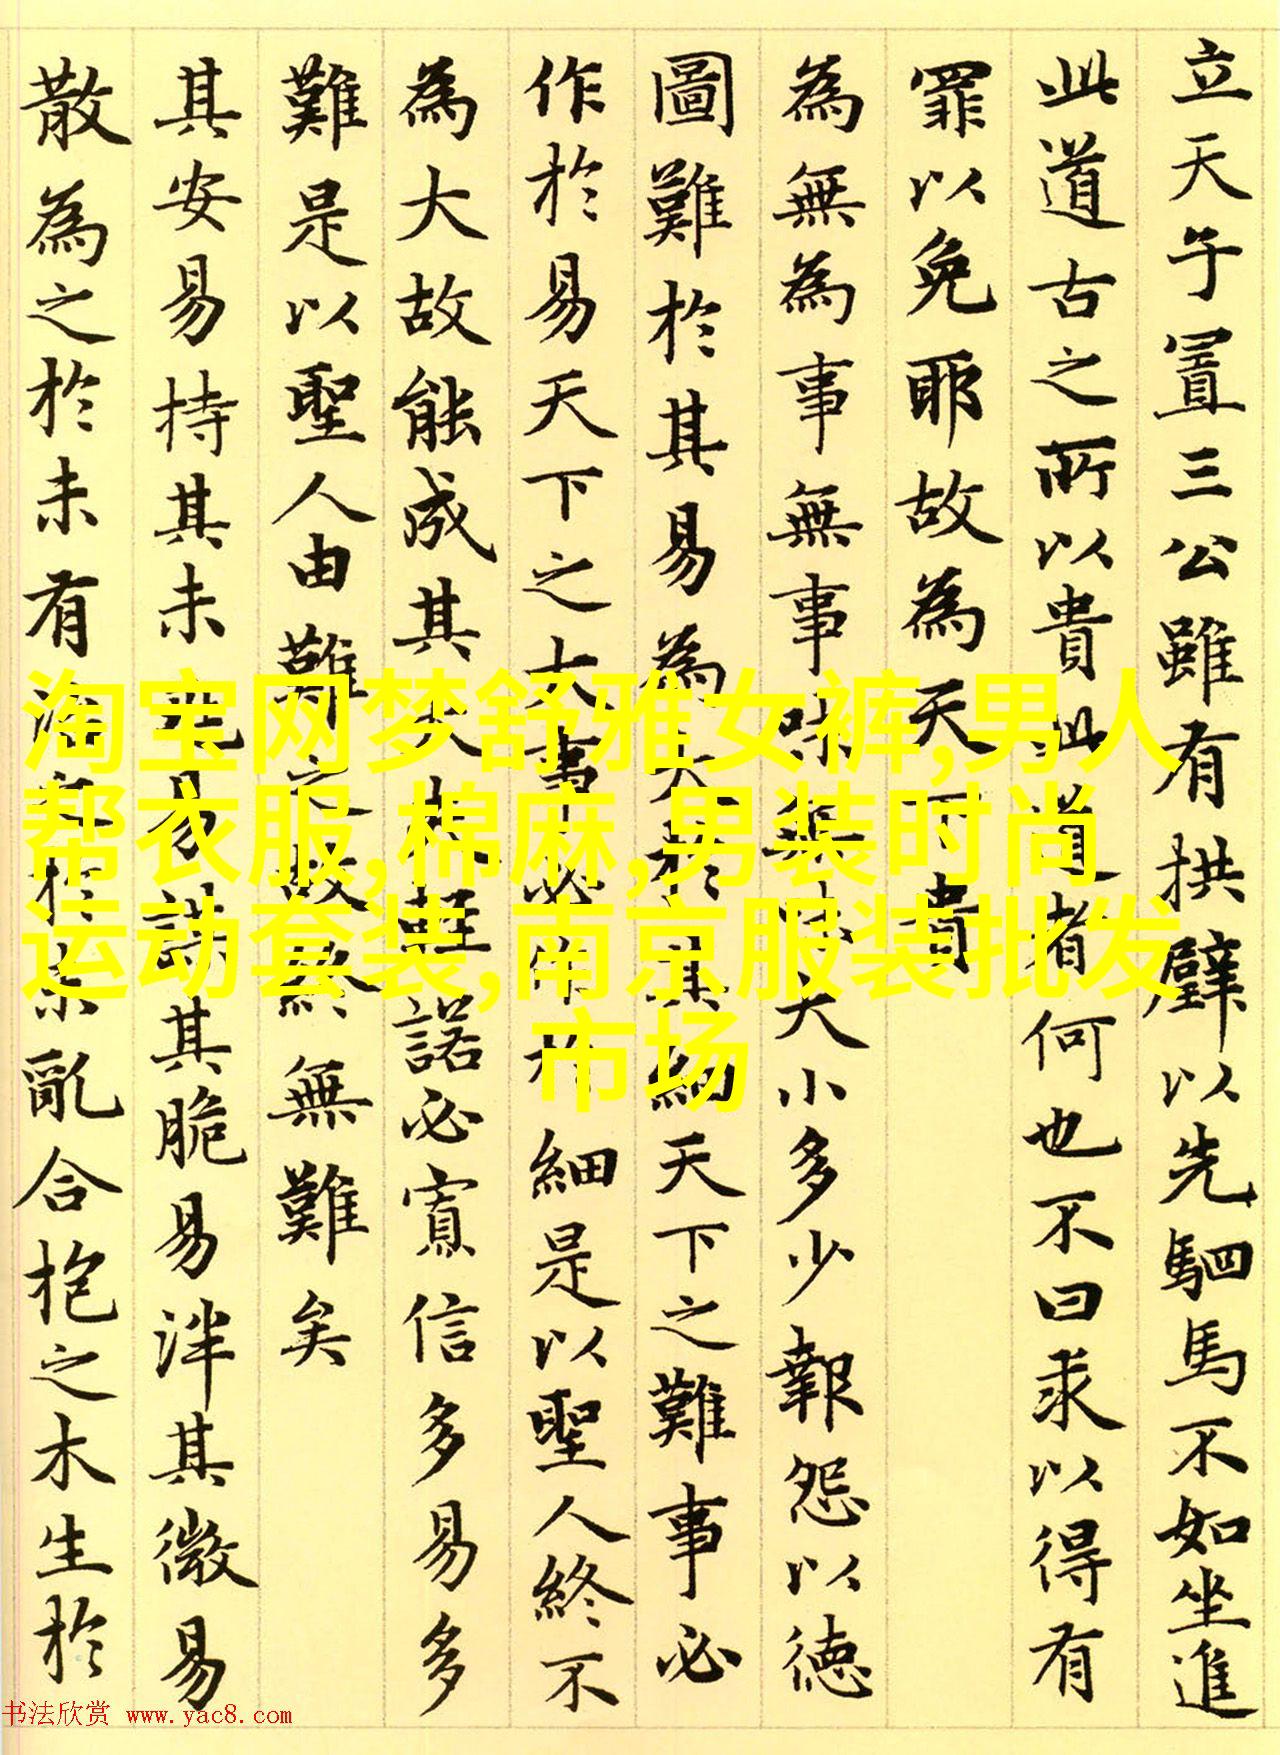 立天子置三公雖有拱璧以先駟馬不如坐進
此道古之所以貴此道者何也不曰求以得有
罪以免耶故為天下貴
為無為事無事味無味大小多少報怨以德
圖難於其易為大於其細天下之難事必
作於易天下之大事必作於細是以聖人終不
為大故能成其大夫輕諾必寡信多易多
難是以聖人由難之故終無難矣
其安易持其未兆易謀其脆易泮其微易
散為之於未有治之於未亂合抱之木生於
淘宝网梦舒雅女裤,男人
帮衣服,棉麻,男装时尚
运动套装,南京服装批发
市场
书法欣赏 www.yac8.com